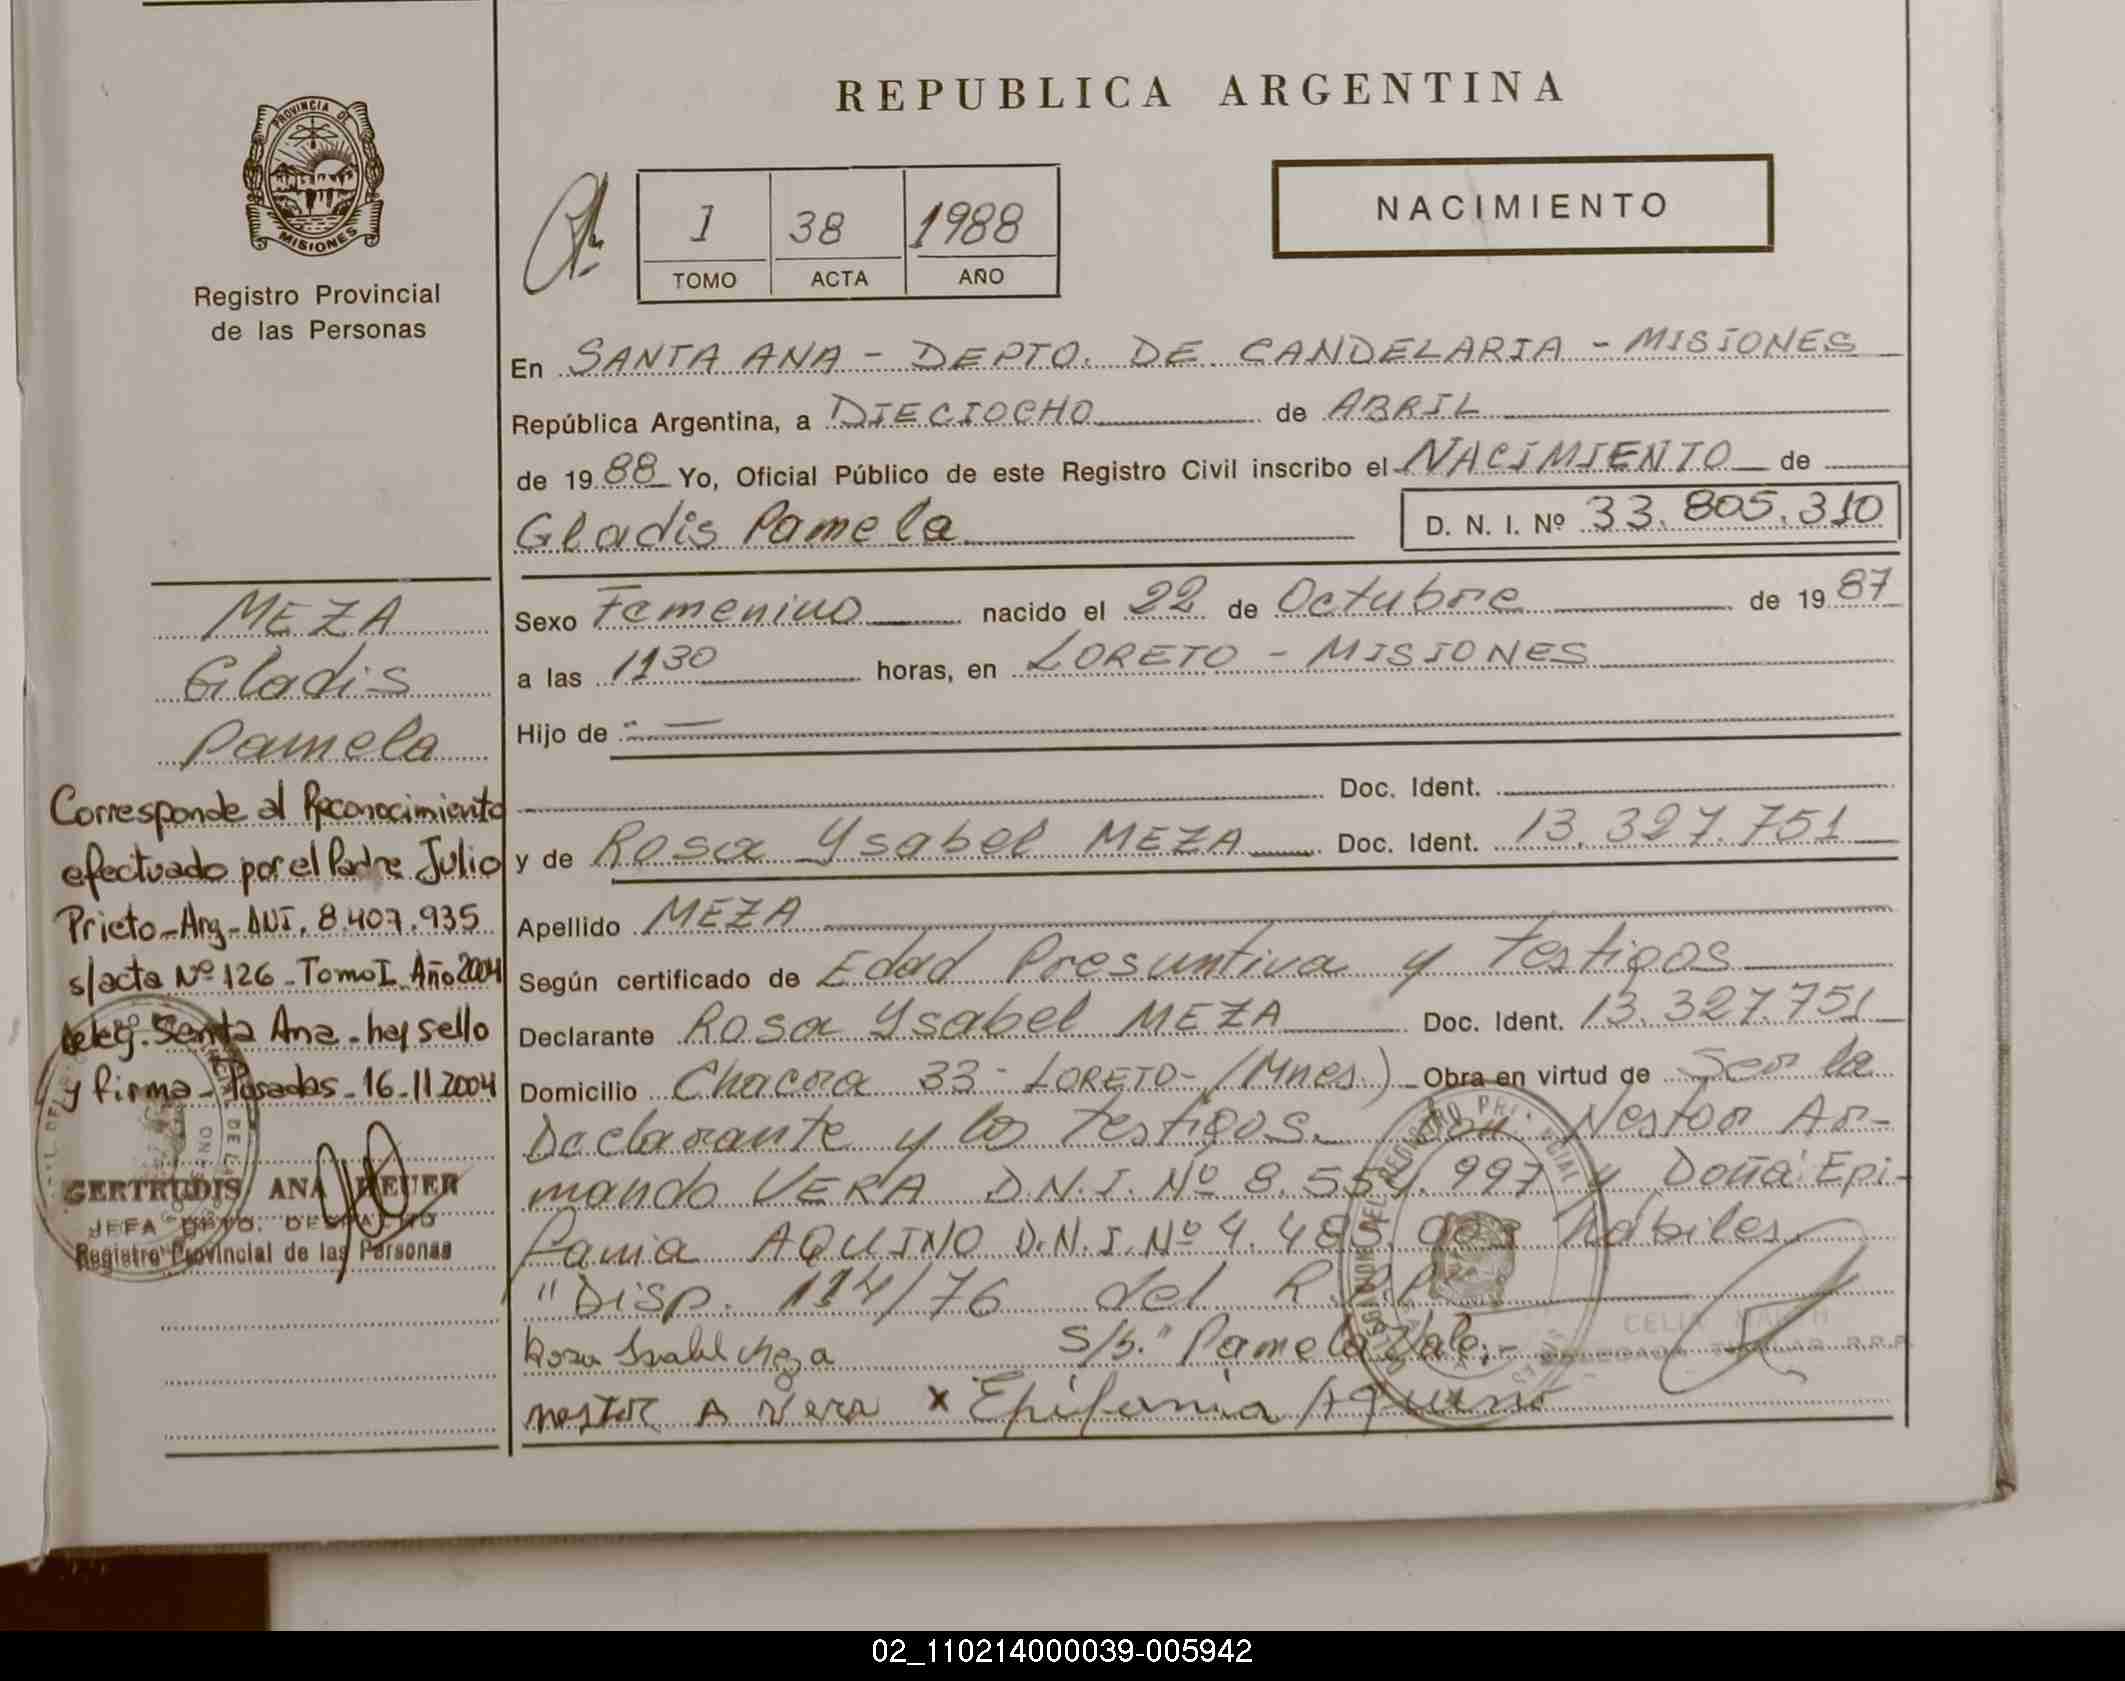 REPUBLICA ARGENTINA
PROVINCIA DE
MISIONES
Registro Provincial
de las Personas
1 38 1988
TOMO ACTA AÑO
NACIMIENTO
En SANTA ANA - DEPTO. DE CANDELARIA - MISIONES
República Argentina, a DIECIOCHO de ABRIL
de 1988 Yo, Oficial Público de este Registro Civil inscribo el NACIMIENTO de
Gladis Pamela D. N. I. Nº 33.805.310
Sexo Femenino nacido el 22 de Octubre de 1987
a las 1130 horas, en LORETO - MISIONES
Hijo de
Doc. Ident.
y de Rosa Ysabel MEZA Doc. Ident. 13.327.751
Apellido MEZA
Según certificado de Edad Presuntiva y Testigos
Declarante Rosa Ysabel MEZA Doc. Ident. 13.327.751
Domicilio Chacra 33- LORETO- (Mnes.) Obra en virtud de Ser la
Declarante y los Testigos. Don Nestor Ar-
mando VERA D.N.I. Nº 8.554.997 y Doña Epi-
fania AQUINO D.N.I. Nº 4.485. hábiles
"Disp. 114/76 del R.P.P.
Rosa Isabel Meza S/b." Pamela Vale.-
nestor A Vera x Epifania Aquino
MEZA
Gladis
Pamela
Corresponde al Reconocimiento
efectuado por el Padre Julio
Prieto-Arg-DNI. 8.407.935
s/acta Nº 126 - Tomo I. Año 2004
deleg. Santa Ana - hay sello
y firma - Posadas - 16-11-2004
GERTRUDIS ANA
JEFA DPTO. DESPACHO
Registro Provincial de las Personas
CELIA
02_110214000039-005942